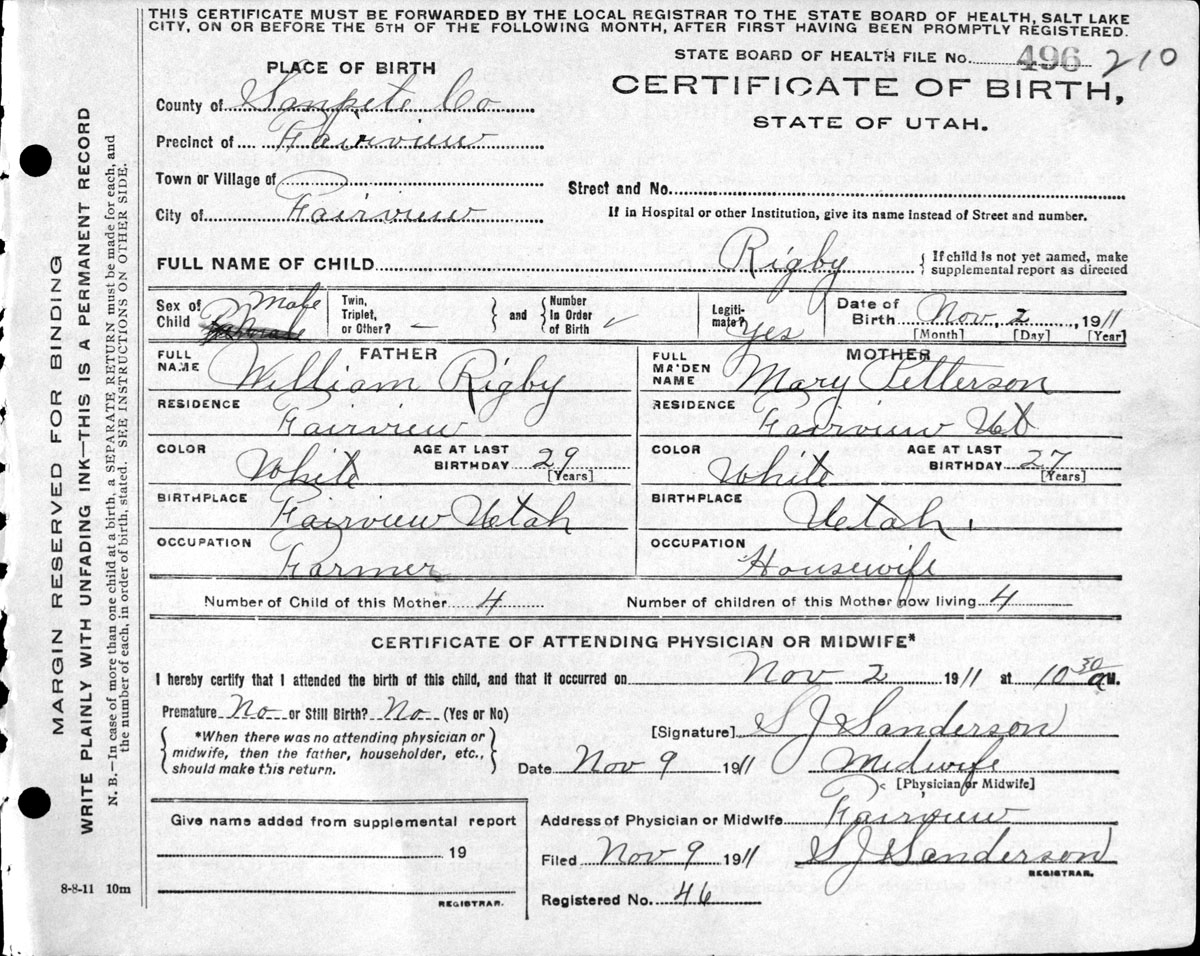 THIS CERTIFICATE MUST BE FORWARDED BY THE LOCAL REGISTRAR TO THE STATE BOARD OF HEALTH, SALT LAKE
CITY, ON OR BEFORE THE 5TH OF THE FOLLOWING MONTH, AFTER FIRST HAVING BEEN PROMPTLY REGISTERED.
STATE BOARD OF HEALTH FILE No. 496 210
PLACE OF BIRTH
CERTIFICATE OF BIRTH,
STATE OF UTAH.
County of Sanpete Co
Precinct of Fairview
Town or Village of
Street and No.
City of Fairview
If in Hospital or other Institution, give its name instead of Street and number.
FULL NAME OF CHILD Rigby { If child is not yet named, make
supplemental report as directed
Sex of Child Male Female
Twin, Triplet, or Other? — } and { Number In Order of Birth ✓
Legitimate? Yes
Date of Birth Nov. 2, 1911
[Month] [Day] [Year]
FATHER
FULL NAME William Rigby
RESIDENCE Fairview
COLOR White AGE AT LAST BIRTHDAY 29 [Years]
BIRTHPLACE Fairview Utah
OCCUPATION Farmer
MOTHER
FULL MAIDEN NAME Mary Petterson
RESIDENCE Fairview Ut
COLOR White AGE AT LAST BIRTHDAY 27 [Years]
BIRTHPLACE Utah.
OCCUPATION Housewife
Number of Child of this Mother 4 Number of children of this Mother now living 4
CERTIFICATE OF ATTENDING PHYSICIAN OR MIDWIFE*
I hereby certify that I attended the birth of this child, and that it occurred on Nov 2 1911 at 10 30 a M.
Premature No or Still Birth? No (Yes or No)
*When there was no attending physician or
midwife, then the father, householder, etc.,
should make this return.
[Signature] S J Sanderson
Date Nov 9 1911 Midwife
[Physician or Midwife]
Give name added from supplemental report
19
REGISTRAR.
Address of Physician or Midwife Fairview
Filed Nov 9 1911 S J Sanderson
REGISTRAR.
Registered No. 46
8-8-11 10m
MARGIN RESERVED FOR BINDING
WRITE PLAINLY WITH UNFADING INK—THIS IS A PERMANENT RECORD
N. B.—In case of more than one child at a birth, a SEPARATE RETURN must be made for each, and
the number of each, in order of birth, stated. SEE INSTRUCTIONS ON OTHER SIDE.